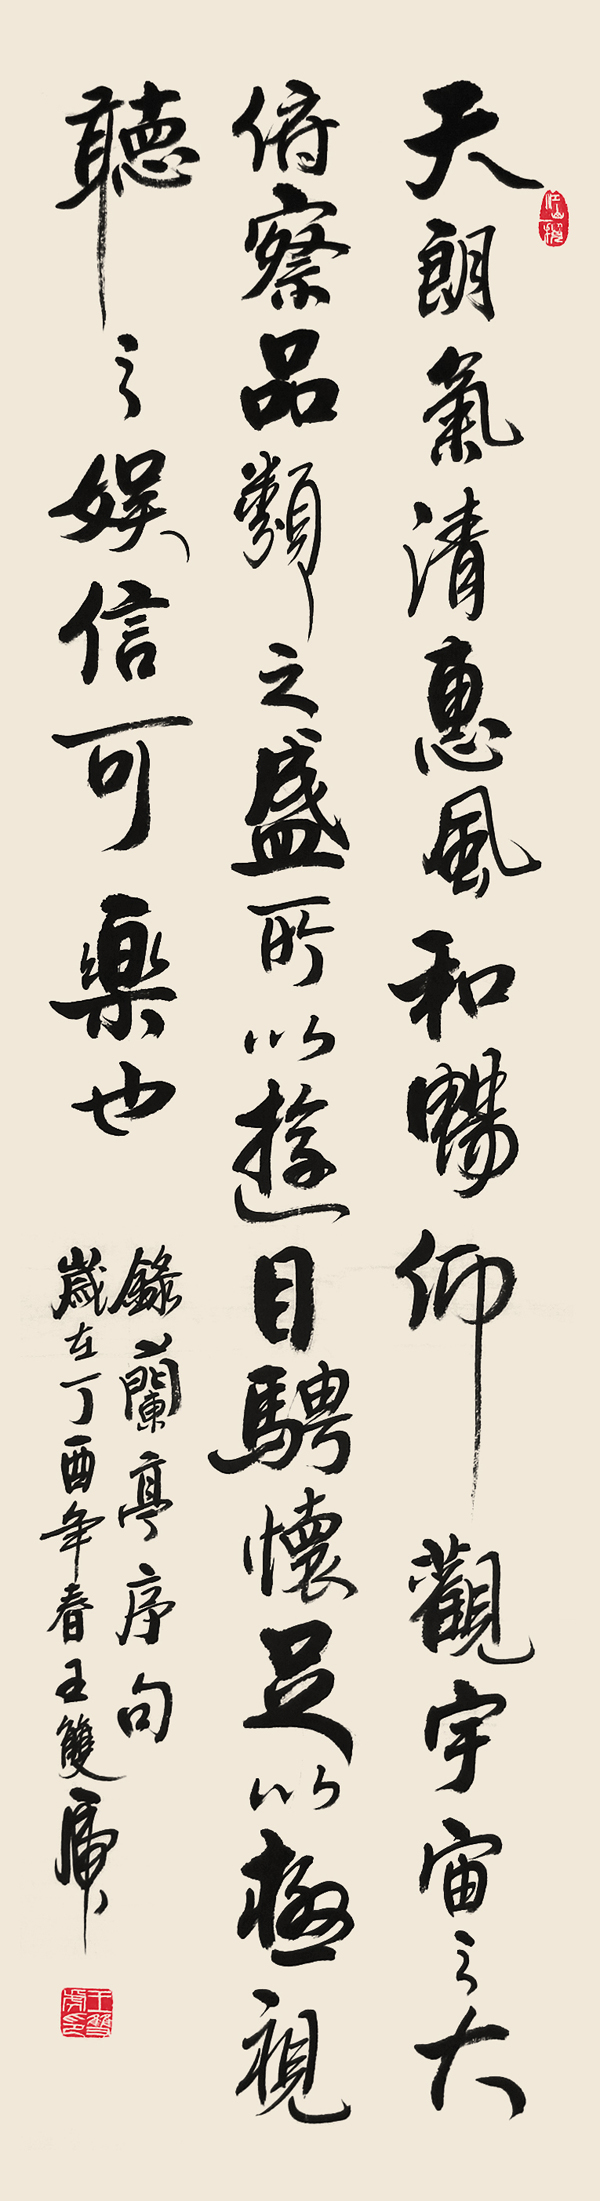 天朗氣清惠風和暢仰觀宇宙之大
俯察品類之盛所以遊目騁懷足以極視
聽之娱信可樂也
錄蘭亭序句
歲在丁酉年春王雙虎